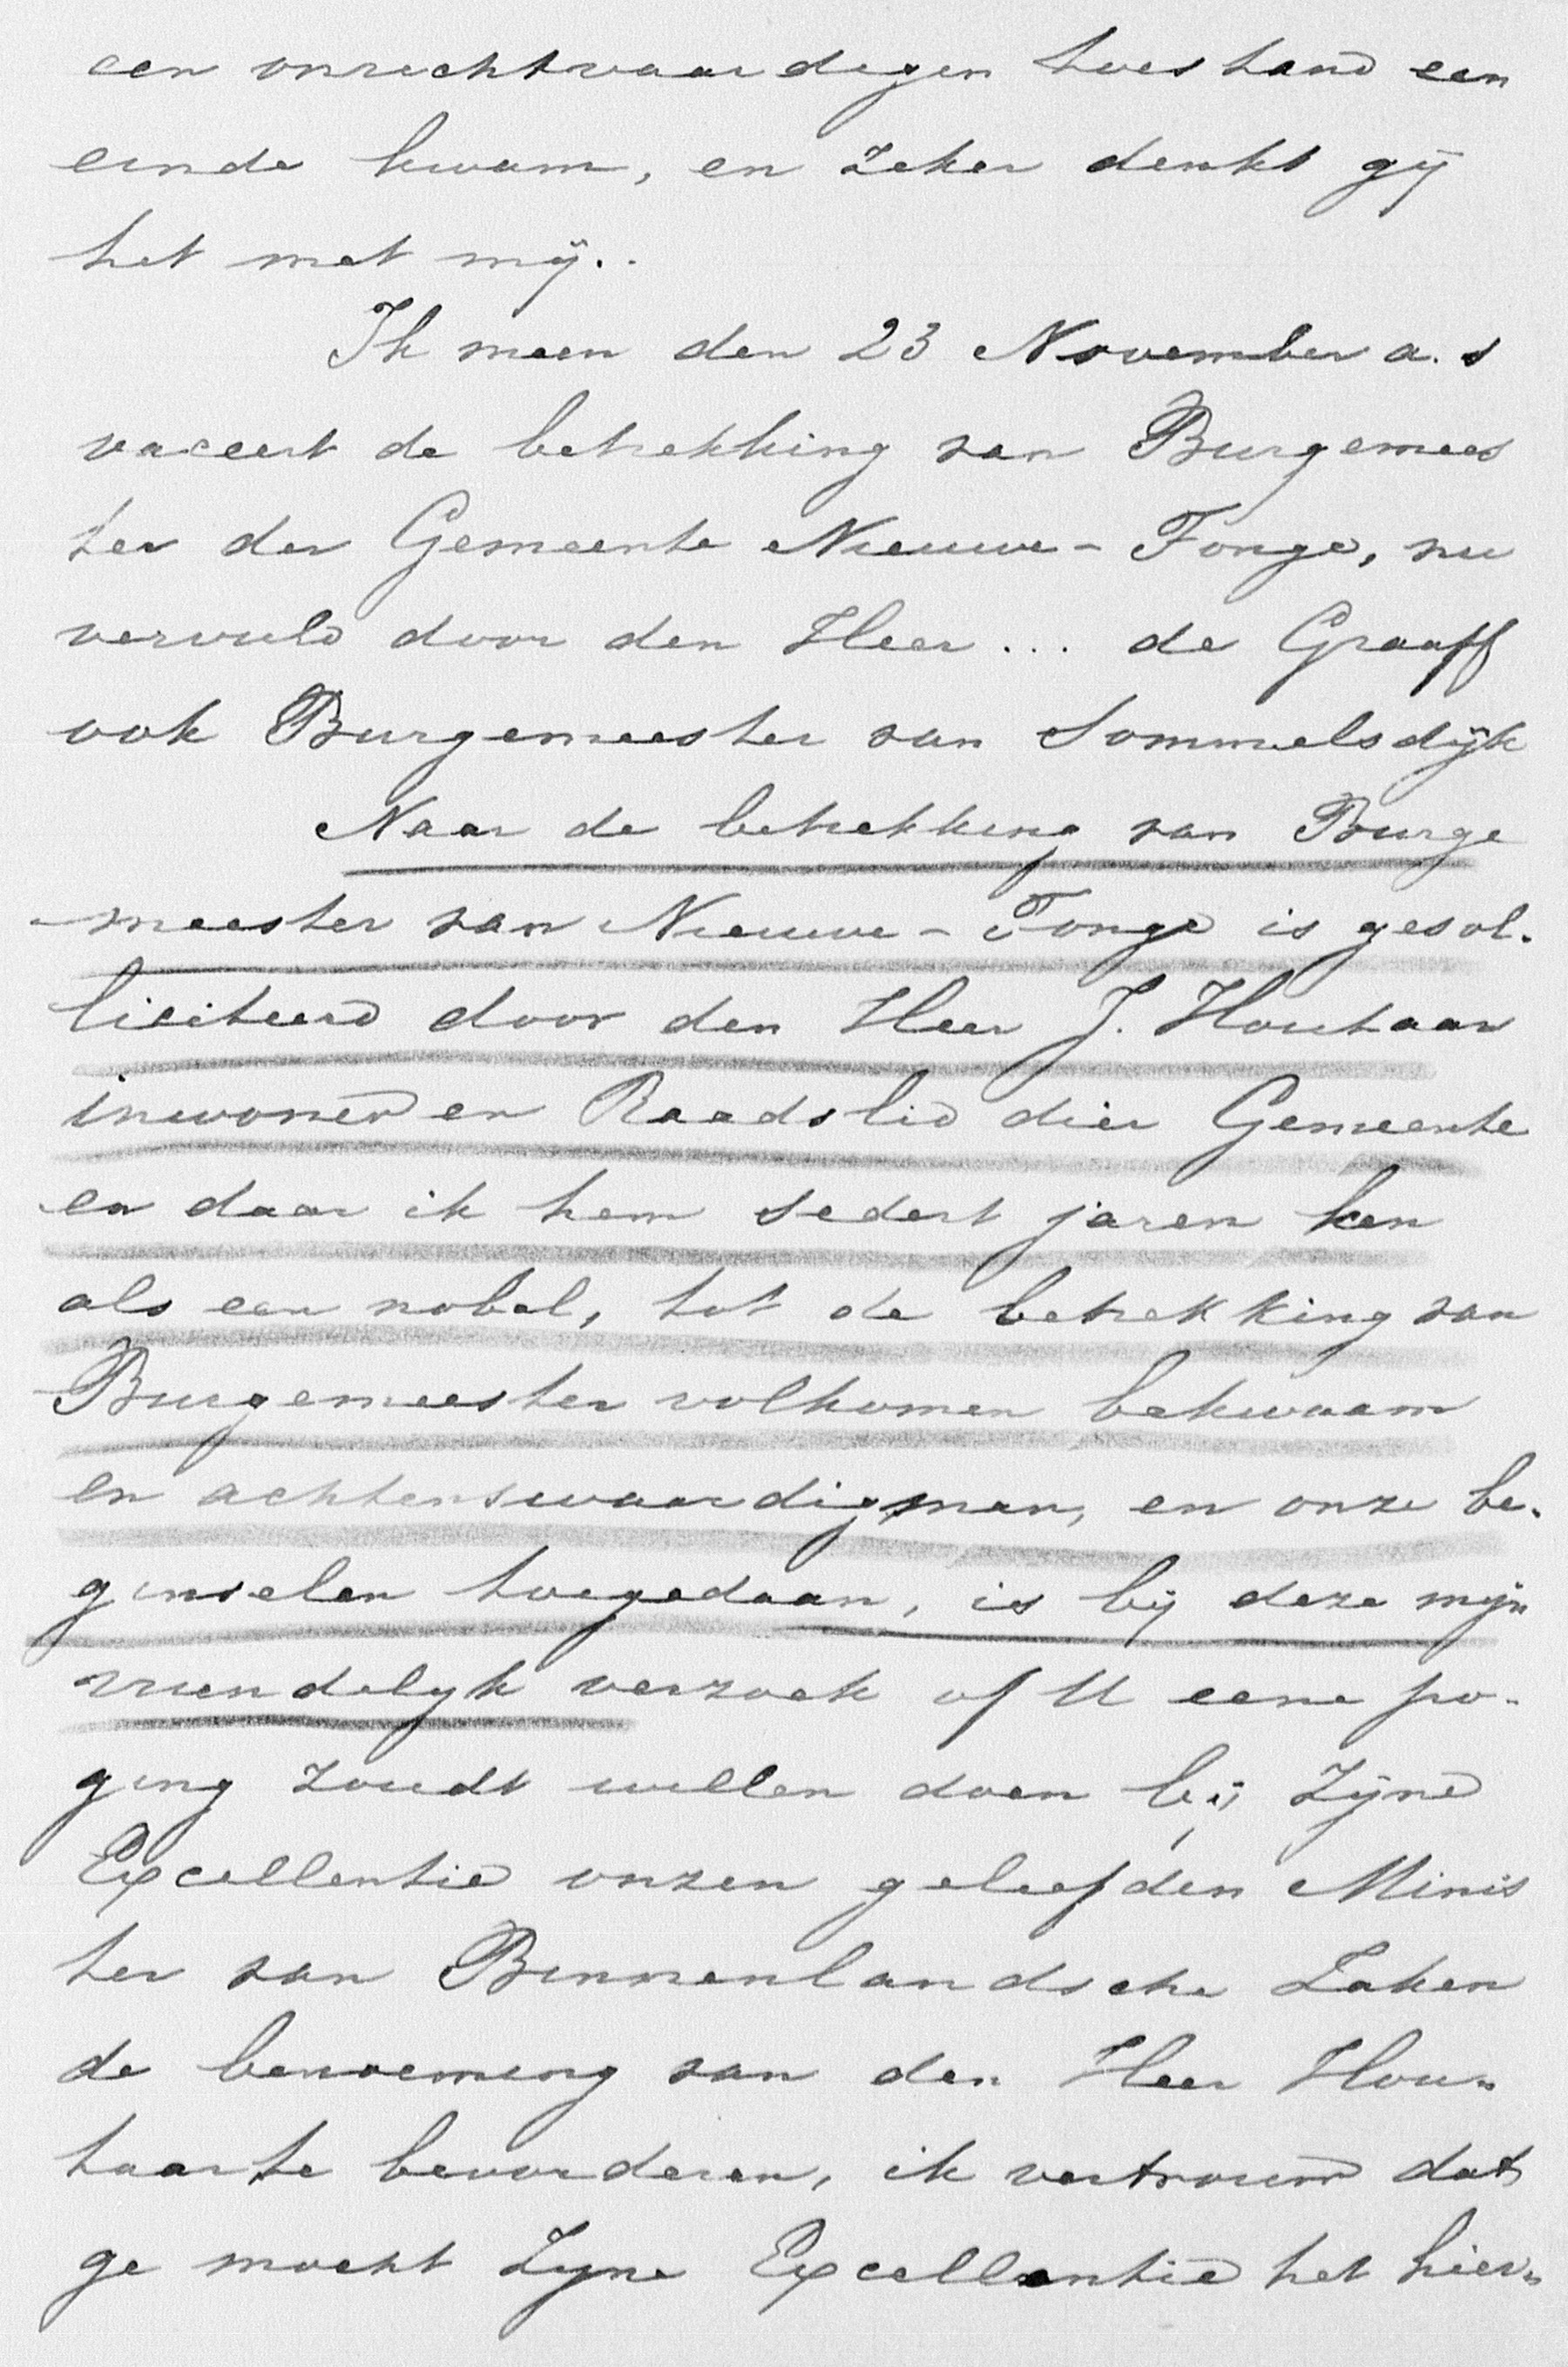 een onrechtvaardigen toestand een
einde kwam, en zeker denkt gij
het met mij..
Ik meen den 23 November a.s
vaceert de betrekking van Burgemees
ter der Gemeente Nieuwe-Tonge, nu
vervuld door den Heer ... de Graaff
ook Burgemeester van Sommelsdijk
Naar de betrekking van Burge
meester van Nieuwe-Tonge is gesol-
liciteerd door den Heer J. Houtaar
inwoner en Raadslid dier Gemeente
en daar ik hem sedert jaren ken
als een nobel, tot de betrekking van
Burgemeester volkomen bekwaam
en achtenswaardig man, en onze be-
ginselen toegedaan, is bij deze mijn
vriendelijk verzoek of U eene po-
ging zoudt willen doen bij Zijne
Excellentie onzen geliefden Minis
ter van Binnenlandsche Zaken
de benoeming van den Heer Hou-
taar te bevorderen, ik vertrouw dat
ge mocht Zijne Excellentie het hier-